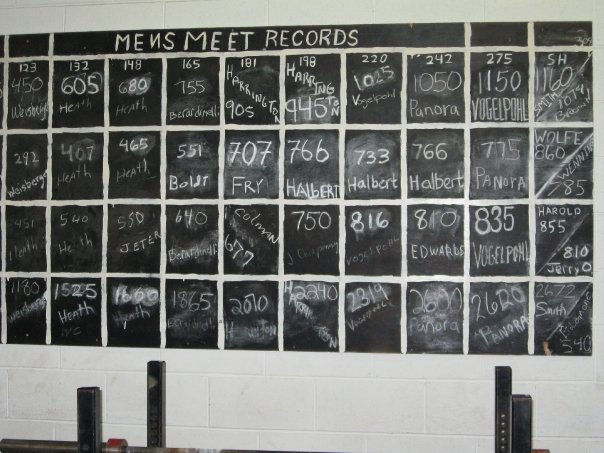 MENS MEET RECORDS
123 132 148 165 181 198 220 242 275 SH 308
450 605 680 755 HARRINGTON 905 HARRINGTON 945 1025 1050 1150 1160
Weisberger Heath Heath Berardinelli Vogelpohl Panora VOGELPOHL SMITH 1014
292 407 465 551 707 766 733 766 775 WOLFE 860
Weisberger Heath Heath BOLDT FRY HALBERT Halbert Halbert PANORA WENNING 785
451 540 550 640 Colman 677 750 816 810 835 HAROLD 855
Heath Heath JETER Berardinelli J Chapman VOGELPOHL EDWARDS VOGELPOHL 810 Jerry O
1180 1525 1660 1865 2010 2240 2319 2600 2620 2672
Weisberger Heath Heath Berardinelli Harrington HARRINGTON Vogelpohl Panora PANORA Smith
540